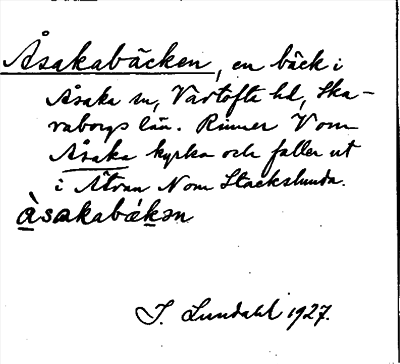 Åsakabäcken, en bäck i
Åsaka sn, Vartofta hd, Ska-
raborgs län. Rinner V om
Åsaka kyrka och faller ut
i Ätran N om Stackslunda.
àsakabákən
I. Lundahl 1927.